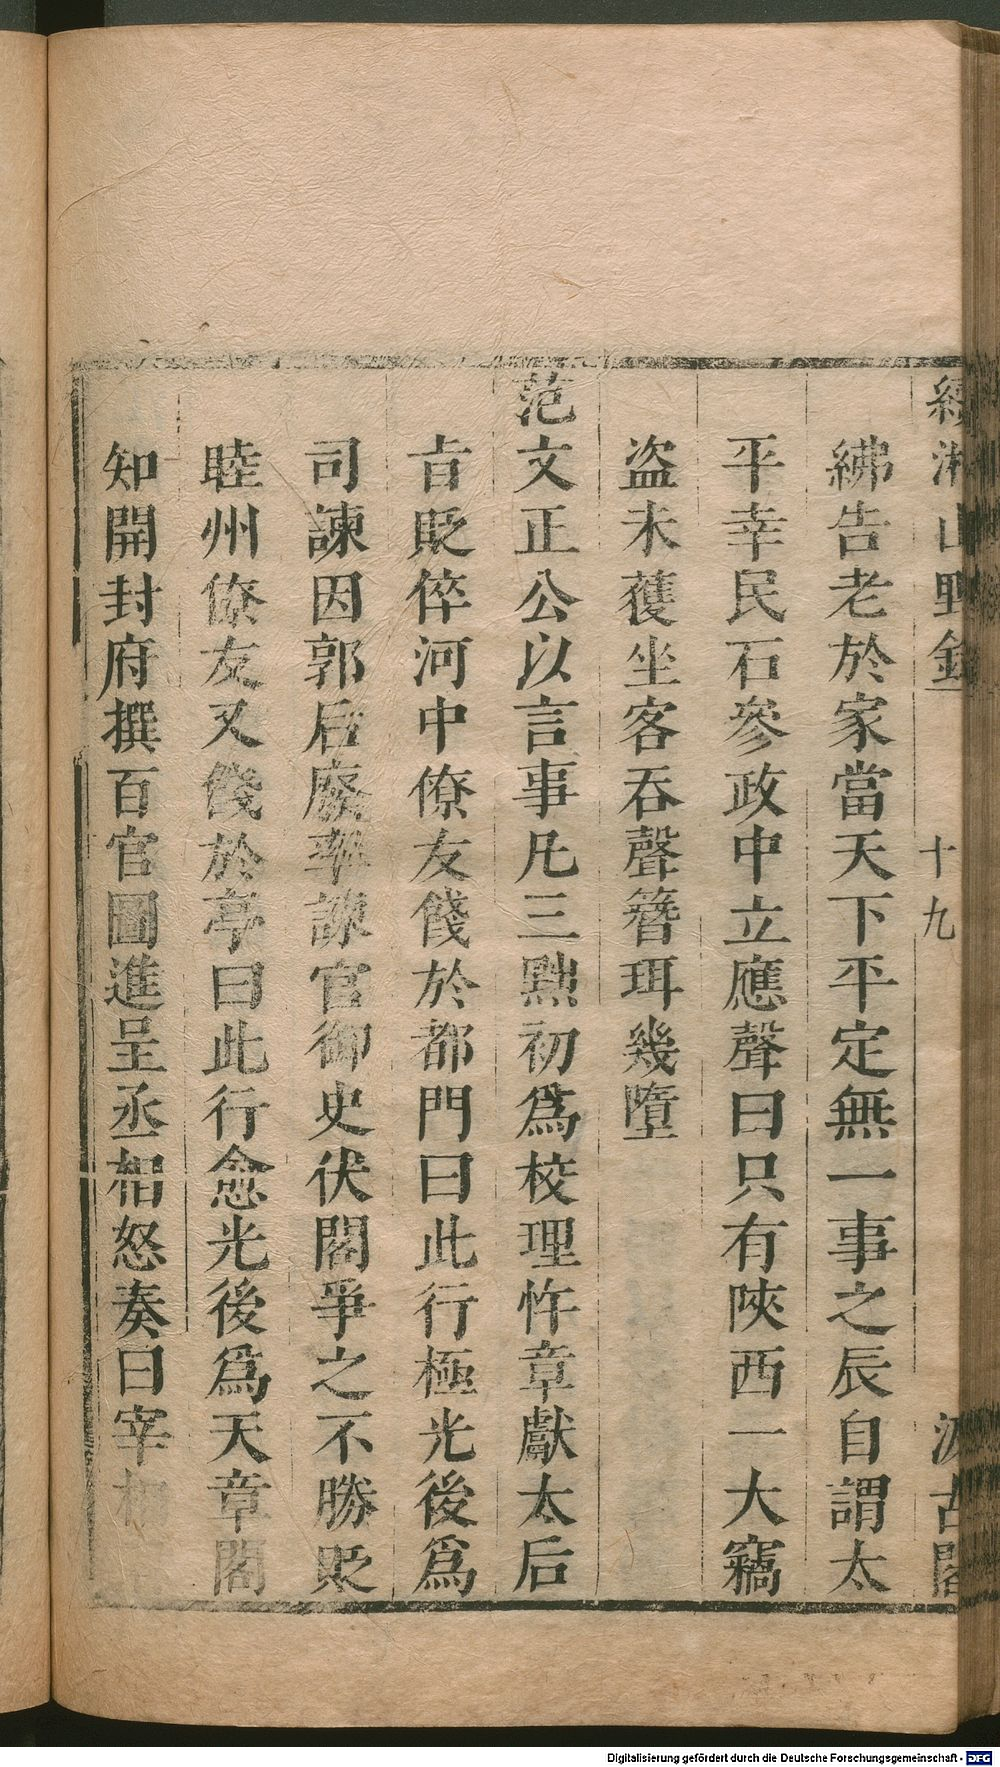 續湘山野錄 十九 汲古閣
紼告老於家當天下平定無一事之辰自謂太
平幸民石參政中立應聲曰只有陜西一大竊
盜未獲坐客吞聲簪珥幾墮
范文正公以言事凡三黜初爲校理忤章獻太后
㫖貶倅河中僚友餞於都門曰此行極光後爲
司諫因郭后廢率諫官御史伏閤爭之不勝貶
睦州僚友又餞於亭曰此行愈光後爲天章閣
知開封府撰百官圖進呈丞相怒奏曰宰相
Digitalisierung gefördert durch die Deutsche Forschungsgemeinschaft - DFG